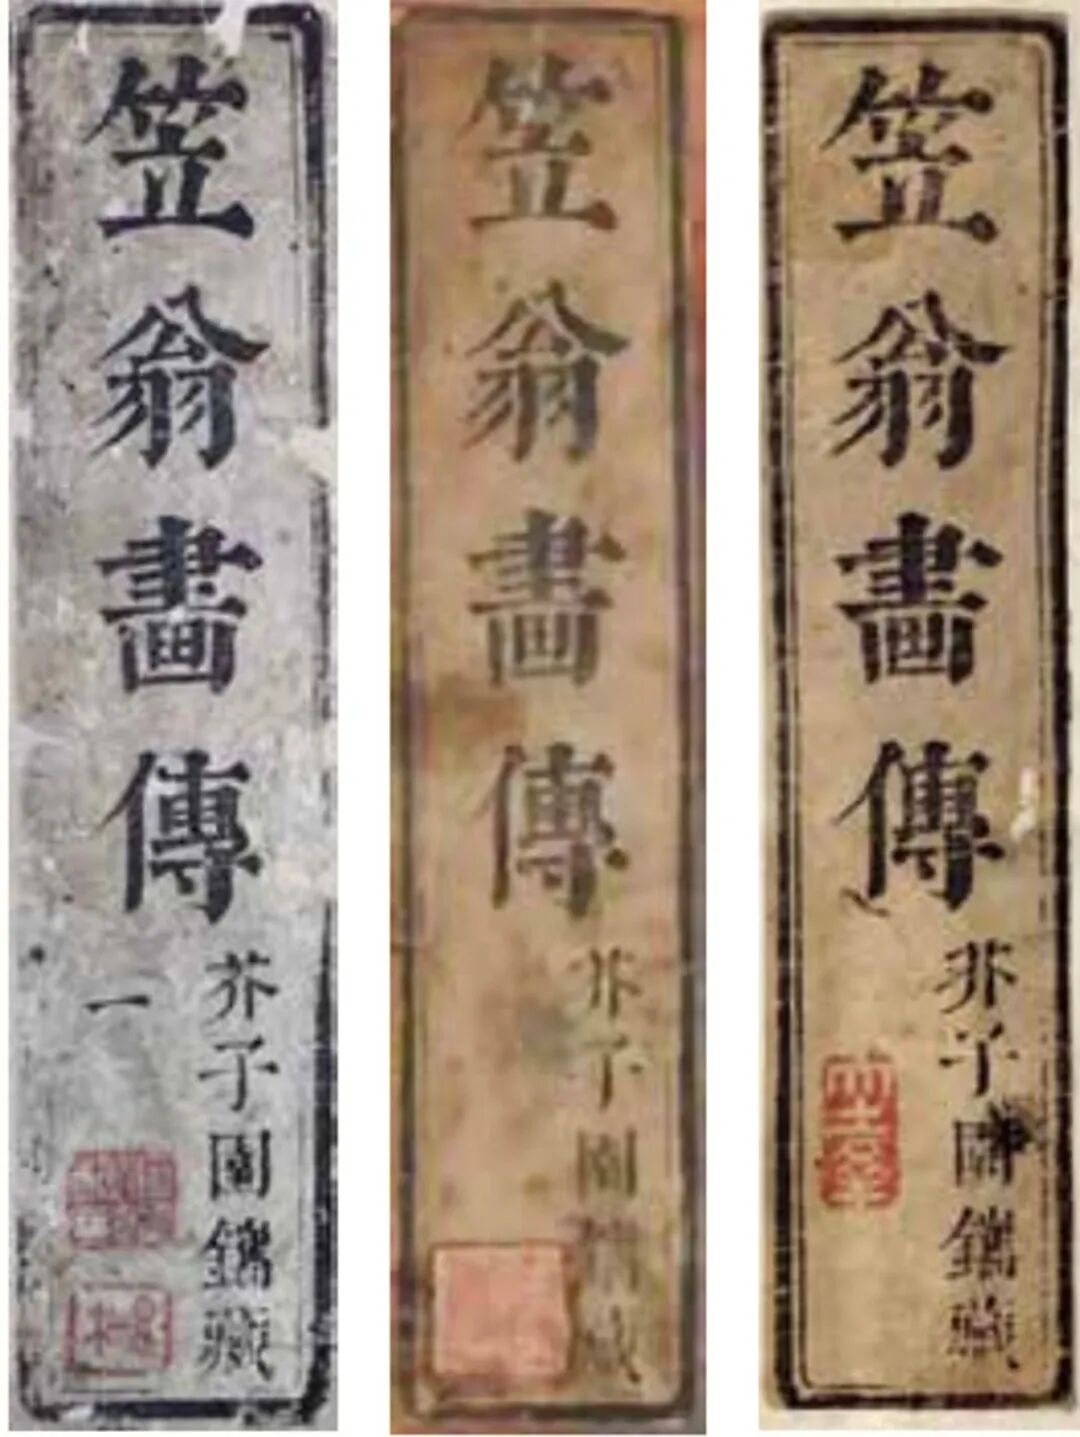 笠翁畫傳
芥子園鐫藏
一
笠翁畫傳
芥子園鐫藏
笠翁畫傳
芥子園鐫藏